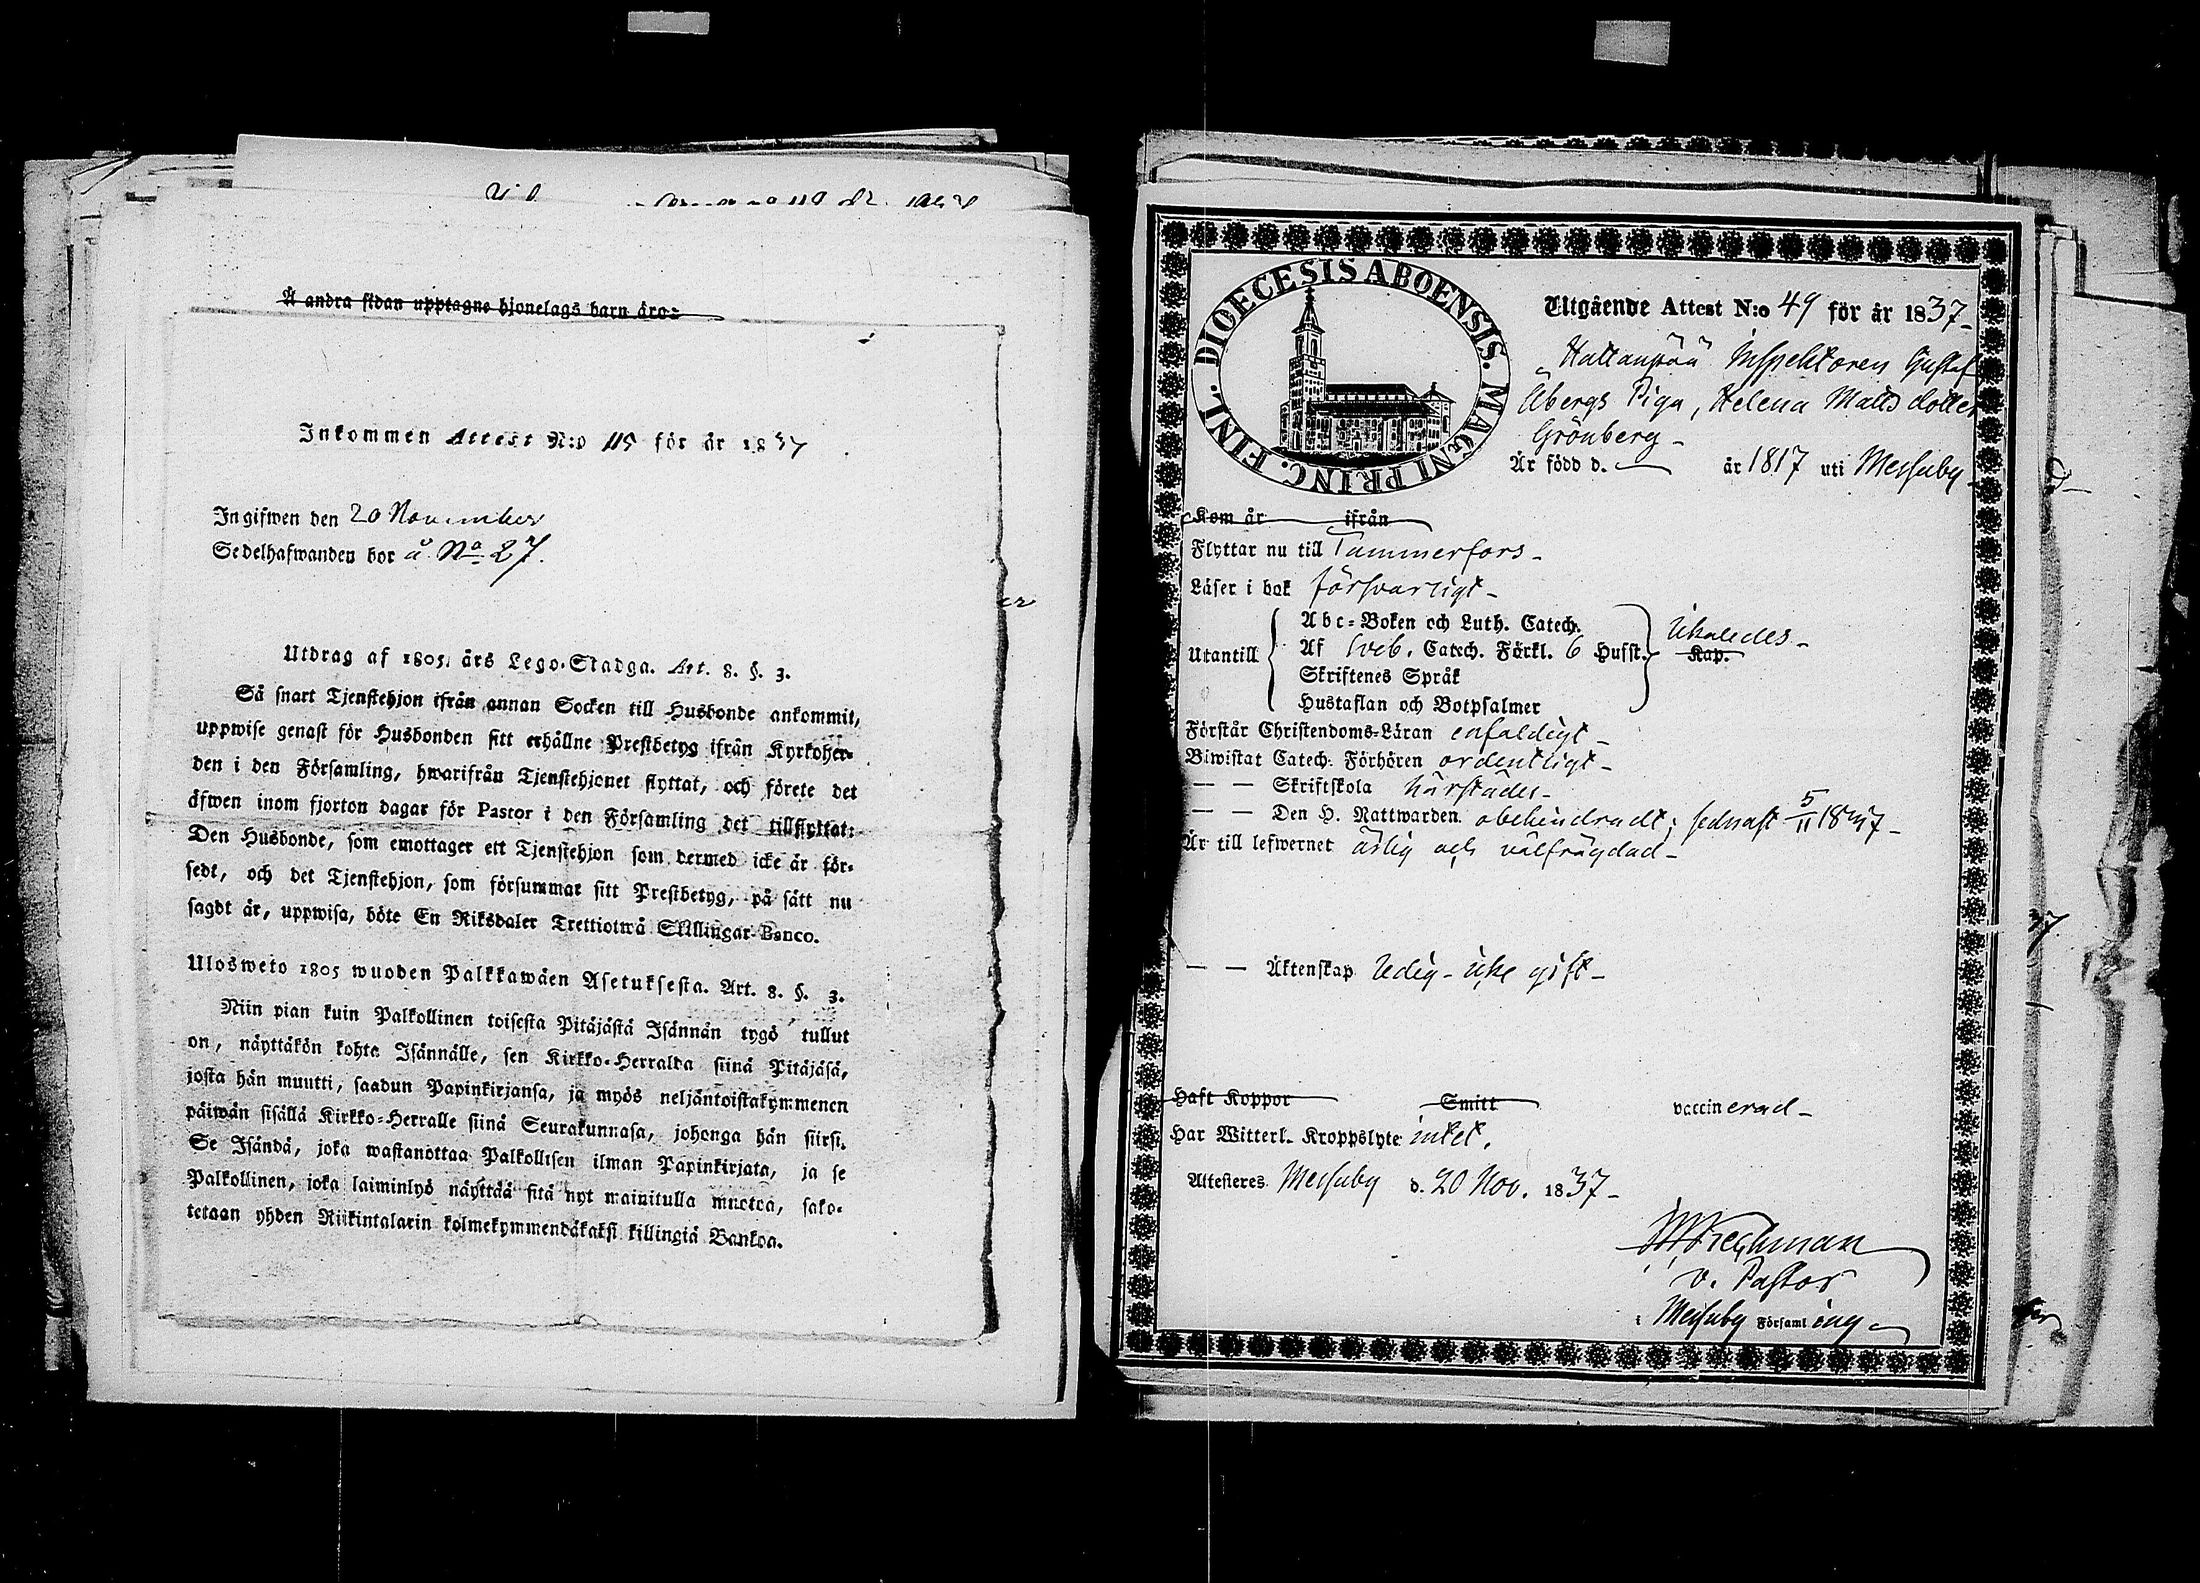 Å andra sidan upptagne hjonelags barn äro:
Inkommen Attest N:o 115 för år 1837
Ingifwen den 20 November
Sedelhafwanden bor å No 27.
Utdrag af 1805 års Lego-Stadga. Art. 8. §. 3.
Så snart Tjenstehjon ifrån annan Socken till Husbonde ankommit,
uppwise genast för Husbonden sitt erhållne Prestbetyg ifrån Kyrkoher-
den i den Församling, hwarifrån Tjenstehjonet flyttat, och förete det
äfwen inom fjorton dagar för Pastor i den Församling det tillflyttat:
Den Husbonde, som emottager ett Tjenstehjon som dermed icke är för-
sedt, och det Tjenstehjon, som försummar sitt Prestbetyg, på sätt nu
sagdt är, uppwisa, böte En Riksdaler Trettiotwå Skillingar Banco.
Ulosweto 1805 wuoden Palkkawäen Asetuksesta. Art. 8. §. 3.
Niin pian kuin Palkollinen toisesta Pitäjästä Isännän tygö tullut
on, näyttäkön kohta Isännälle, sen Kirkko-Herralda siinä Pitäjäsä,
josta hän muutti, saadun Papinkirjansa, ja myös neljäntoistakymmenen
päiwän sisällä Kirkko-Herralle siinä Seurakunnasa, johonga hän siirsi.
Se Isändä, joka wastanottaa Palkollisen ilman Papinkirjata, ja se
Palkollinen, joka laiminlyö näyttää sitä nyt mainitulla muotoa, sako-
tetaan yhden Riikintalarin kolmekymmendäkaksi killingiä Bankoa.
DIOECESIS ABOENSIS. MAGNI PRINC. FINL.
Utgående Attest N:o 49 för år 1837-
Hattanpää Inspektoren Gustaf
Åbergs Piga, Helena Matts dotter
Grönberg-
Är född d. år 1817 uti Messuby
Kom år ifrån
Flyttar nu till Tammerfors-
Läser i bok försvarligt-
Utantill
Abc-Boken och Luth. Catech.
Af Sveb. Catech. Förkl. 6 Husst.
Skriftenes Språk
Hustaflan och Botpsalmer
likaledes-
Kap.
Förstår Christendoms-Läran enfaldigt-
Biwistat Catech. Förhören ordentligt-
— — Skriftskola härstädes-
— — Den H. Nattwarden obehindradt; sednast 5/11 1837-
Är till lefwernet ärlig och välfrägdad-
— — Äktenskap ledig- icke gift-
Haft Koppor Smitt vaccinerad-
Har Witterl. Kroppslyte intet.
Attesteres Messuby d. 20 Nov. 1837-
v. Pastor
i Messuby Församling